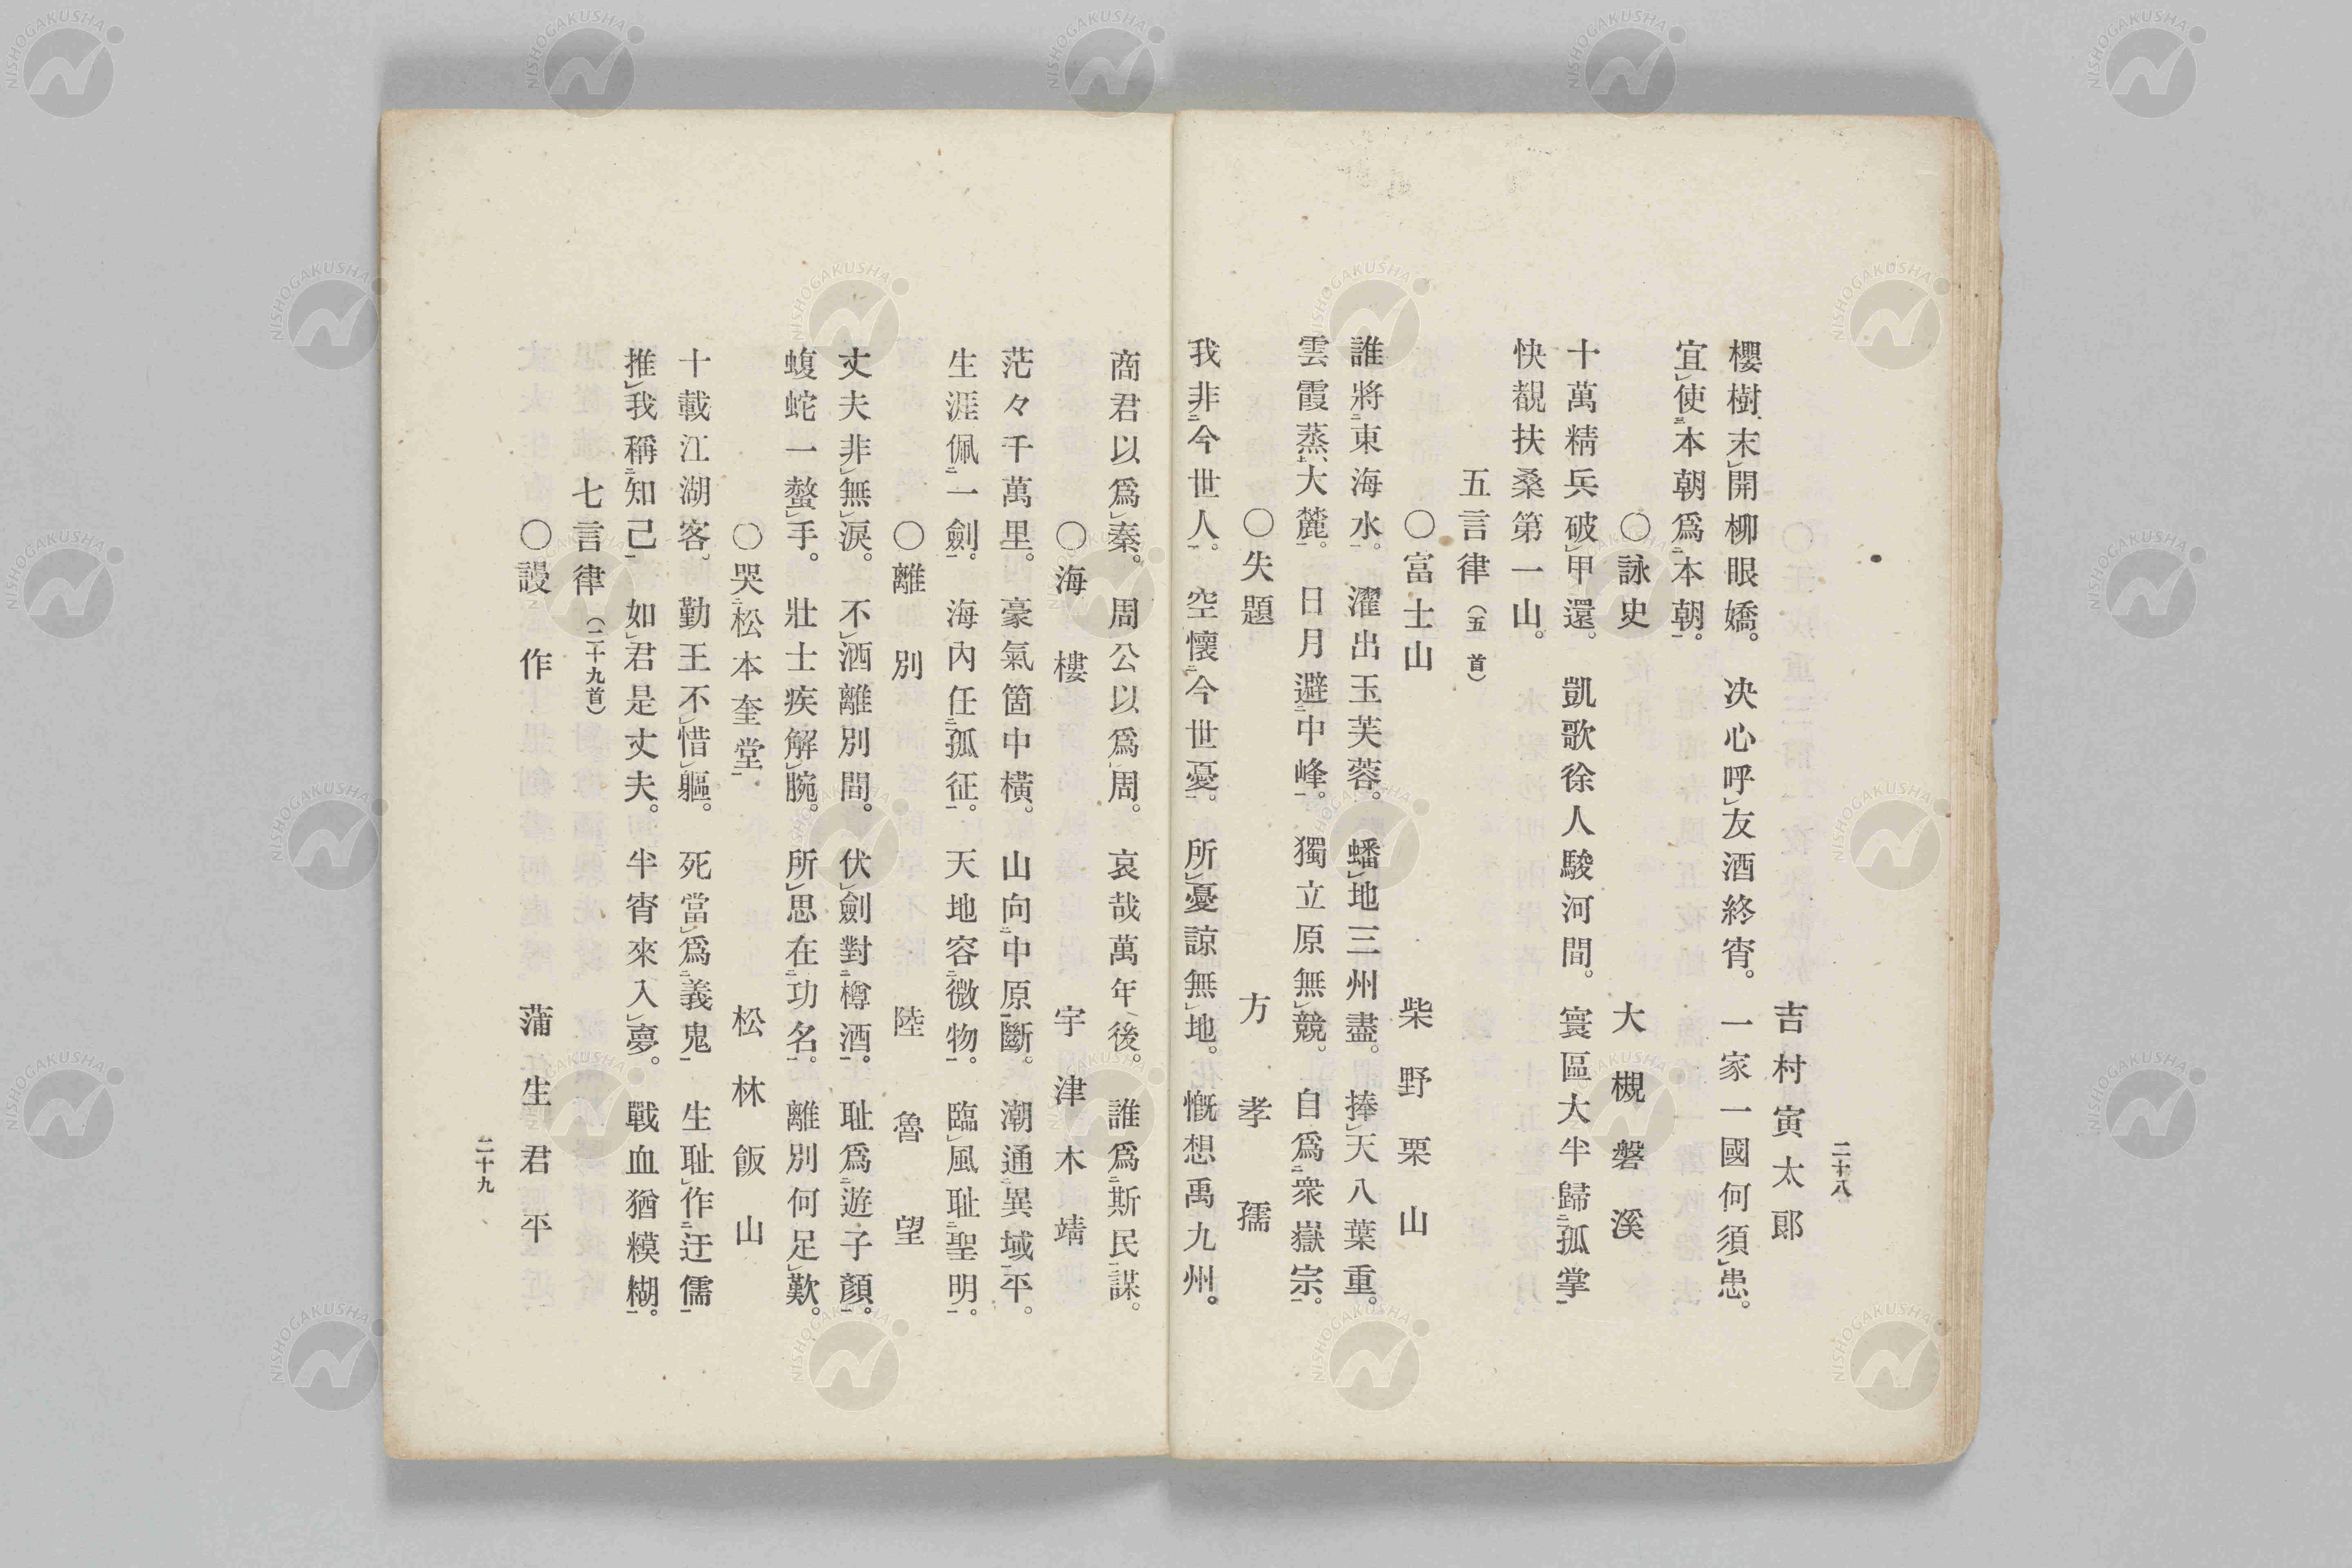 二十八
吉村寅太郎
櫻樹、未㆑開柳眼嬌。決心呼㆑友酒終宵。一家一國何須㆑患。
宜㆑使㆘本朝爲㆓本朝㆒。
○詠史 大槻磐溪
十萬精兵破㆑甲還。凱歌徐入駿河間。寰區大半歸㆓孤掌㆒
快覩扶桑第一山。
五言律（五首）
○富士山 柴野栗山
誰將㆓東海水㆒。濯出玉芙蓉。蟠㆑地三州盡。捧㆑天八葉重。
雲霞蒸㆓大麓㆒。日月避㆓中峰㆒。獨立原無㆑競。自爲㆓衆嶽宗㆒。
○失題 方孝孺
我非㆓今世人㆒。空懷㆓今世憂㆒。所㆑憂諒無㆑地。慨想禹九州。
商君以爲㆑秦。周公以爲㆑周。哀哉萬年後。誰爲㆓斯民㆒謀。
○海樓 宇津木靖
茫々千萬里。豪氣箇中橫。山向㆓中原㆒斷。潮通㆓異域㆒平。
生涯佩㆓一劍㆒。海內任㆓孤征㆒。天地容㆓微物㆒。臨㆑風耻㆓聖明㆒。
○離別 陸魯望
丈夫非㆑無㆑淚。不㆑洒離別間。伏㆑劍對㆓樽酒㆒。耻爲㆓遊子顏㆒。
蝮蛇一螫㆑手。壯士疾解㆑腕。所㆑思在㆓功名㆒。離別何足㆑歎。
○哭㆓松本奎堂㆒ 松林飯山
十載江湖客、勤王不㆑惜㆑軀。死當㆑爲㆓義鬼㆒生耻㆑作㆓迂儒㆒
推㆑我稱㆓知己㆒如㆑君是丈夫。半宵來入㆑夢。戰血猶糢糊。
七言律（二十九首）
○謾作 蒲生君平
二十九